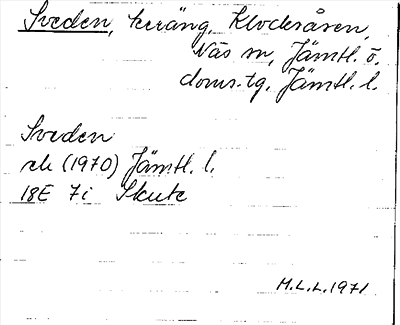 Sveden, terräng, Klocksåsen,
Näs sn, Jämtl. ö.
doms.tg. Jämtl. l.
Sveden
ek (1970) Jämtl. l.
18E 7i Skute
M.L.L. 1971